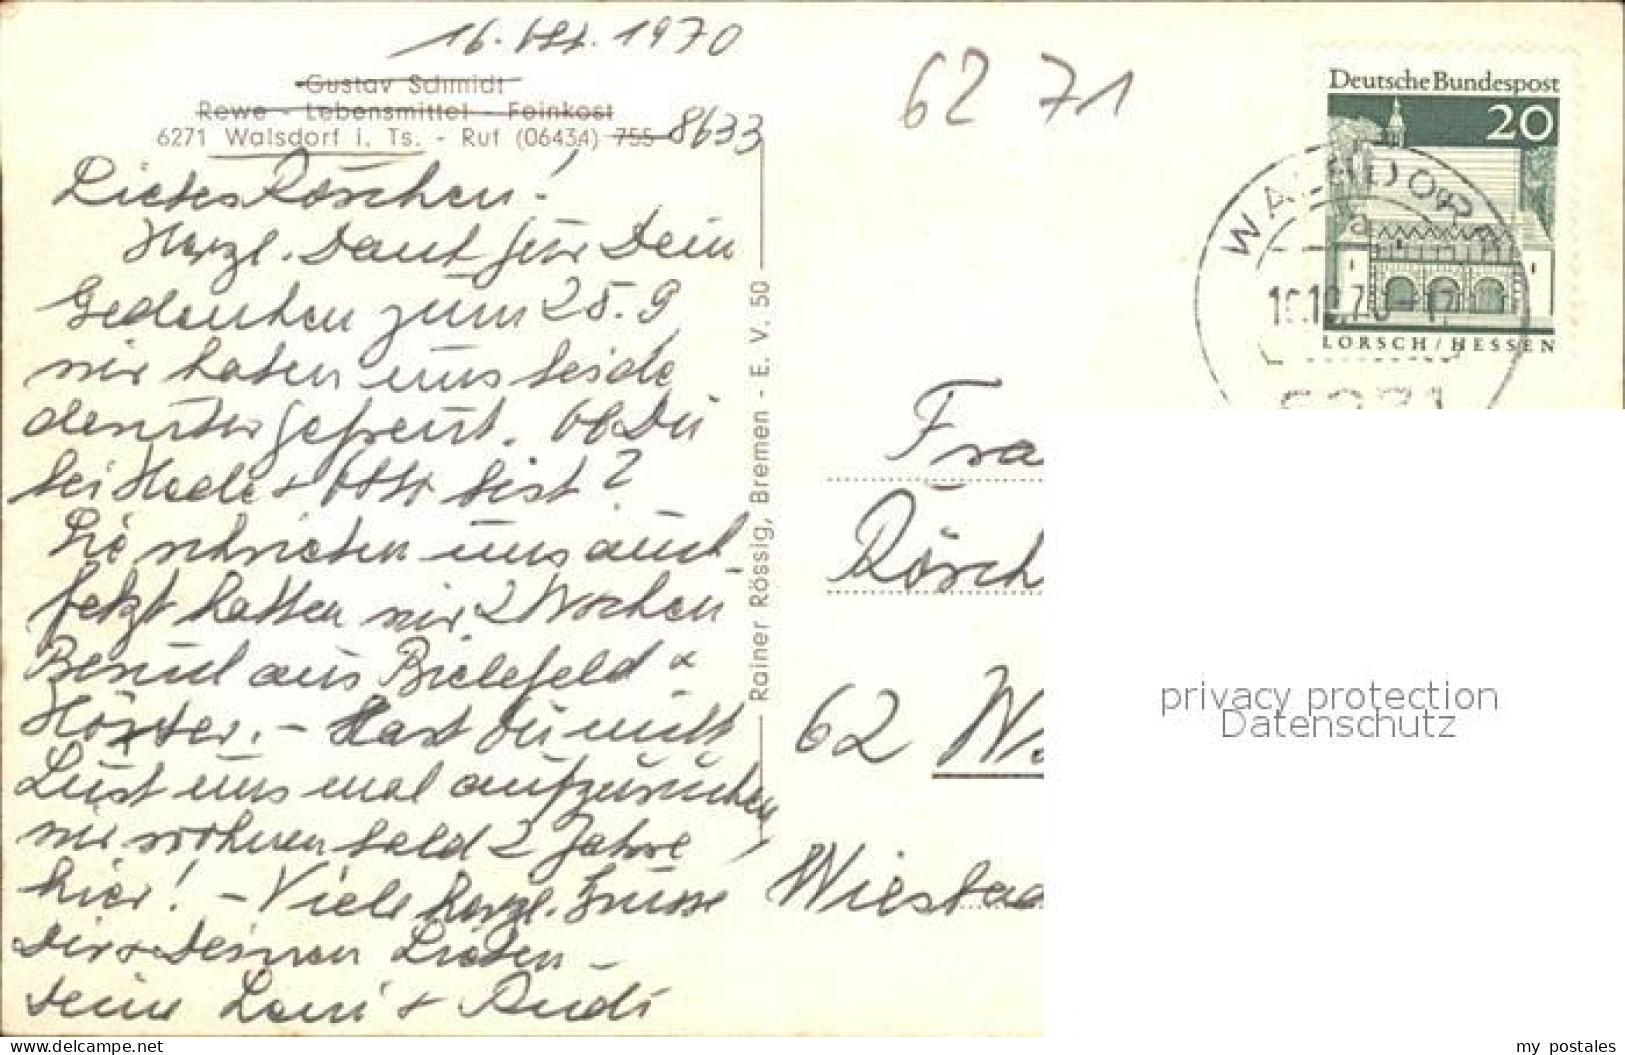 16. Okt. 1970
Gustav Schmidt
Rewe - Lebensmittel - Feinkost
6271 Walsdorf i. Ts. - Ruf (06434) 755 8633
Liebes Röschen!
Herzl. Dank für Dein
Gedenken zum 25.9
wir haben uns beide
darüber gefreut. Ob Du
bei Hede + Otto bist?
Sie schrieben uns auch
Jetzt hatten wir 2 Wochen
Besuch aus Bielefeld &
Höxter. - Hast Du nicht
Lust uns mal aufzusuchen
wir wohnen bald 2 Jahre
hier! - Viele herzl. Grüsse
Dir + Deinen Lieben -
Deine Leni + Rudi
Rainer Rössig, Bremen - E. V. 50
62 71
Deutsche Bundespost
20
LORSCH / HESSEN
WALSDORF
a
6271
Fra
Rösch
62 W
Wiesbad
privacy protection
Datenschutz
www.delcampe.net
my_postales